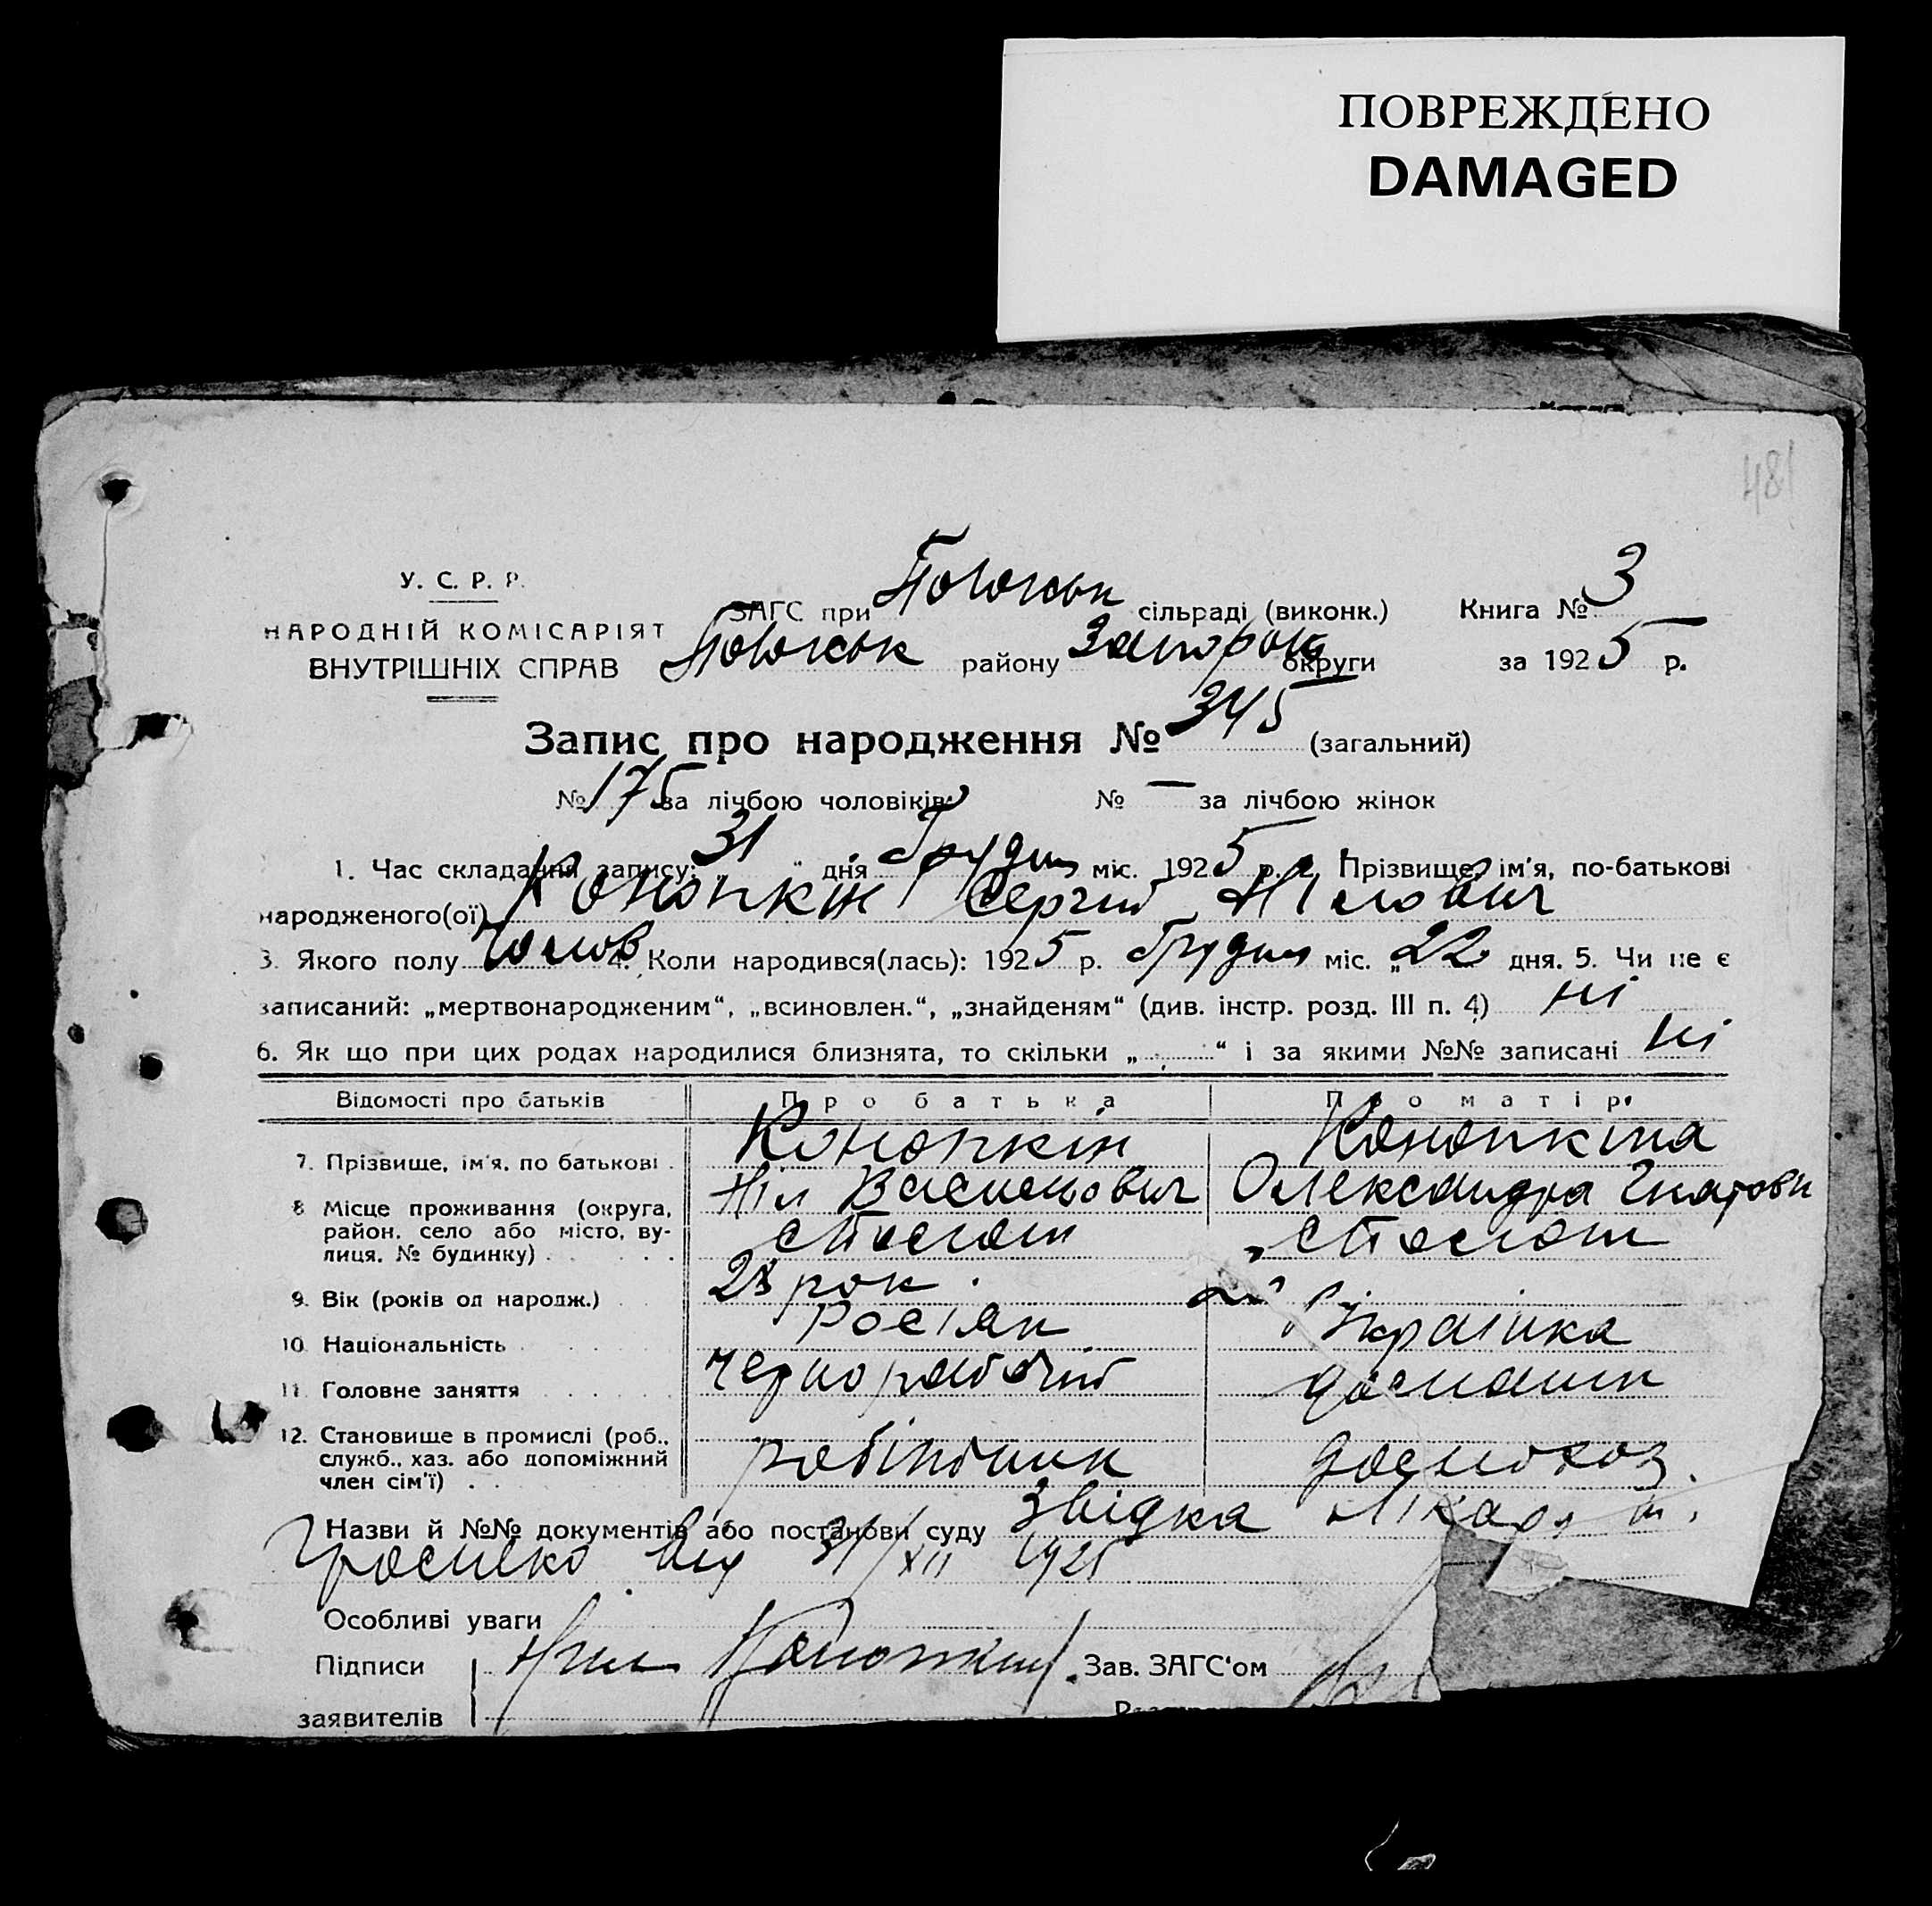 ПОВРЕЖДЕНО
DAMAGED
481
У. С. Р. Р.
НАРОДНІЙ КОМІСАРІЯТ
ВНУТРІШНІХ СПРАВ
ЗАГС при сільраді (виконк.) Книга № 3
району округи за 1925 р.
Запис про народження № 345 (загальний)
№ 175 за лічбою чоловіків № — за лічбою жінок
1. Час складання запису: 31 " дня Грудня міс. 1925 р. 2. Прізвище, ім'я, по-батькові
народженого(ої) Конопкін Сергій Нілович
3. Якого полу Чолов 4. Коли народився(лась): 1925 р. Грудня міс. „22 дня. 5. Чи не є
записаний: „мертвонародженим“, „всиновлен.“, „знайденям“ (див. інстр. розд. III п. 4) ні
6. Як що при цих родах народилися близнята, то скільки „ “ і за якими №№ записані ні
Відомості про батьків Про батька Про матір
7. Прізвище, ім'я, по батькові . Конопкін Конопкіна
Ніл Василович Олександра Гнатовн
8. Місце проживання (округа,
район, село або місто, ву-
лиця, № будинку) . . . .
9. Вік (років од народж.) . 23 рок.
10. Національність . . . . Росіян Українка
11. Головне заняття . . . . чернорабочий
12. Становище в промислі (роб.,
служб., хаз. або допоміжний
член сім'ї) . . робітник
Назви й №№ документів або постанови суду Звідка Лікаря
від 31/XII 1925
Особливі уваги
Підписи Нил Конопкин. Зав. ЗАГС‘ом
заявителів